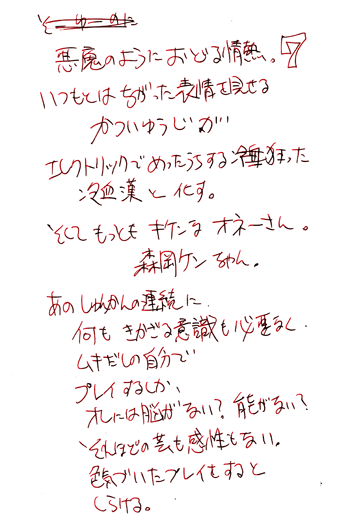 悪魔のようにおどる情熱。 7
いつもとはちがった表情を見せる
かついゅうじが…
エレクトリックでめったうちする 狂った
冷血漢と化す。
そしてもっともキケンなオネーさん。
森岡ケンちゃん。
あのしゅんかんの連続に
何もきかざる意識も必要なく
ムキだしの自分で
プレイするしか、
オレには脳がない?能がない?
そんなほどの芸も感性もない。
色気づいたプレイをすると
しらける。